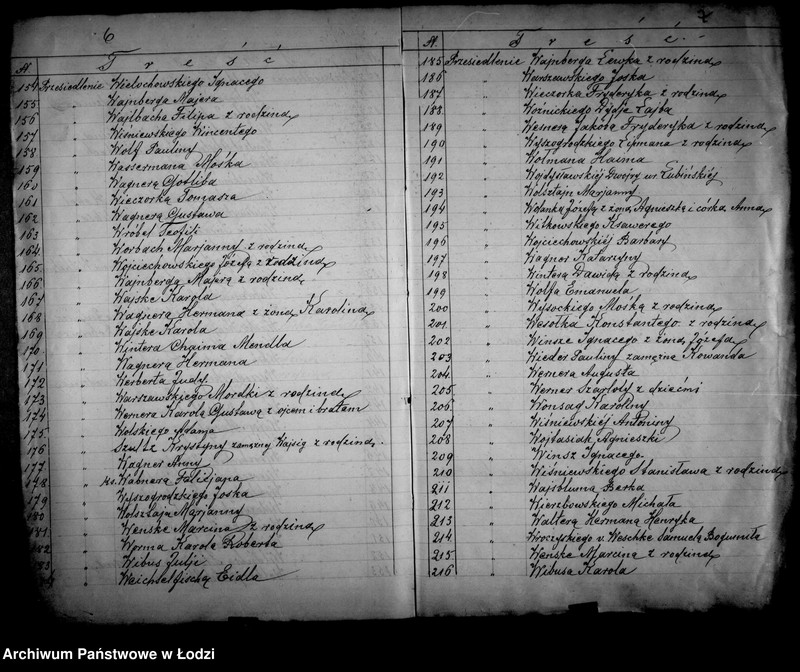 6
N. Treść
154 Przesiedlenie Wielochowskiego Ignacego
155 " Wajnberga Majera
156 " Wajlbacha Filipa z rodziną
157 " Wiśniewskiego Wincentego
158 " Wolf Pauliny
159 " Wassermana Mośka
160 " Wagnera Gotliba
161 " Wieczorka Tomasza
162 " Wagnera Gustawa
163 " Wróbel Teofili
164 " Worbach Marjanny z rodziną
165 " Wojciechowskiego Józefa z rodziną
166 " Wajnberga Majera z rodziną
167 " Wajske Karola
168 " Wagnera Hermana z żoną Karoliną
169 " Wajske Karola
170 " Wintera Chaima Mendla
171 " Wagnera Hermana
172 " Werberta Judy
173 " Warszawskiego Mordki z rodziną
174 " Wernera Karola Gustawa z ojcem i bratem
175 " Wolskiego Adama
176 " Szultz Krystyny zamężny Wajsig z rodziną
177 " Wagner Anny
178 " Wabnera Felicjana
179 " Wyszogrodzkiego Joska
180 " Wolsztajn Marjanny
181 " Wenske Marcina z rodziną
182 " Worma Karola Roberta
183 " Wibus Julje
" Weichselfischa Eidla
7
N. Treść
185 Przesiedlenie Wajnberga Lewka z rodziną
186 " Warszawskiego Joska
187 " Wieczorka Fryderyka z rodziną
188 " Woźnickiego Lajba
189 " Wesnera Jakóba Fryderyka z rodziną
190 " Wyszogrodzkiego Lipmana z rodziną
191 " Wolmana Haima
192 " Wojdysławskiej Dwojry ur. Lubińskiej
193 " Wolsztajn Marjanny
194 " Wolanka Józefa z żoną Agnieszką i córką Anną
195 " Witkowskiego Ksawerego
196 " Wojciechowskiej Barbary
197 " Wagner Katarzyny
198 " Wintera Dawida z rodziną
199 " Wolfa Emanuela
200 " Wysockiego Mośka z rodziną
201 " Wesołka Konstantego z rodziną
202 " Winsze Ignacego z żoną Józefą
203 " Wieder Pauliny zamężna Kowanda
204 " Wernera Augusta
205 " Werner Szarloty z dziećmi
206 " Wonsag Karoliny
207 " Wiśniewskiej Antoniny
208 " Wojtasiak Agnieszki
209 " Winsz Ignacego
210 " Wiśniewskiego Stanisława z rodziną
211 " Wajsbluma Berka
212 " Wierzbowskiego Michała
213 " Waltera Hermana Henryka
214 " Wroczyńskiego v. Weschke Samuela Bogumiła
215 " Wenske Marcina z rodziną
216 " Wibusa Karola
Archiwum Państwowe w Łodzi